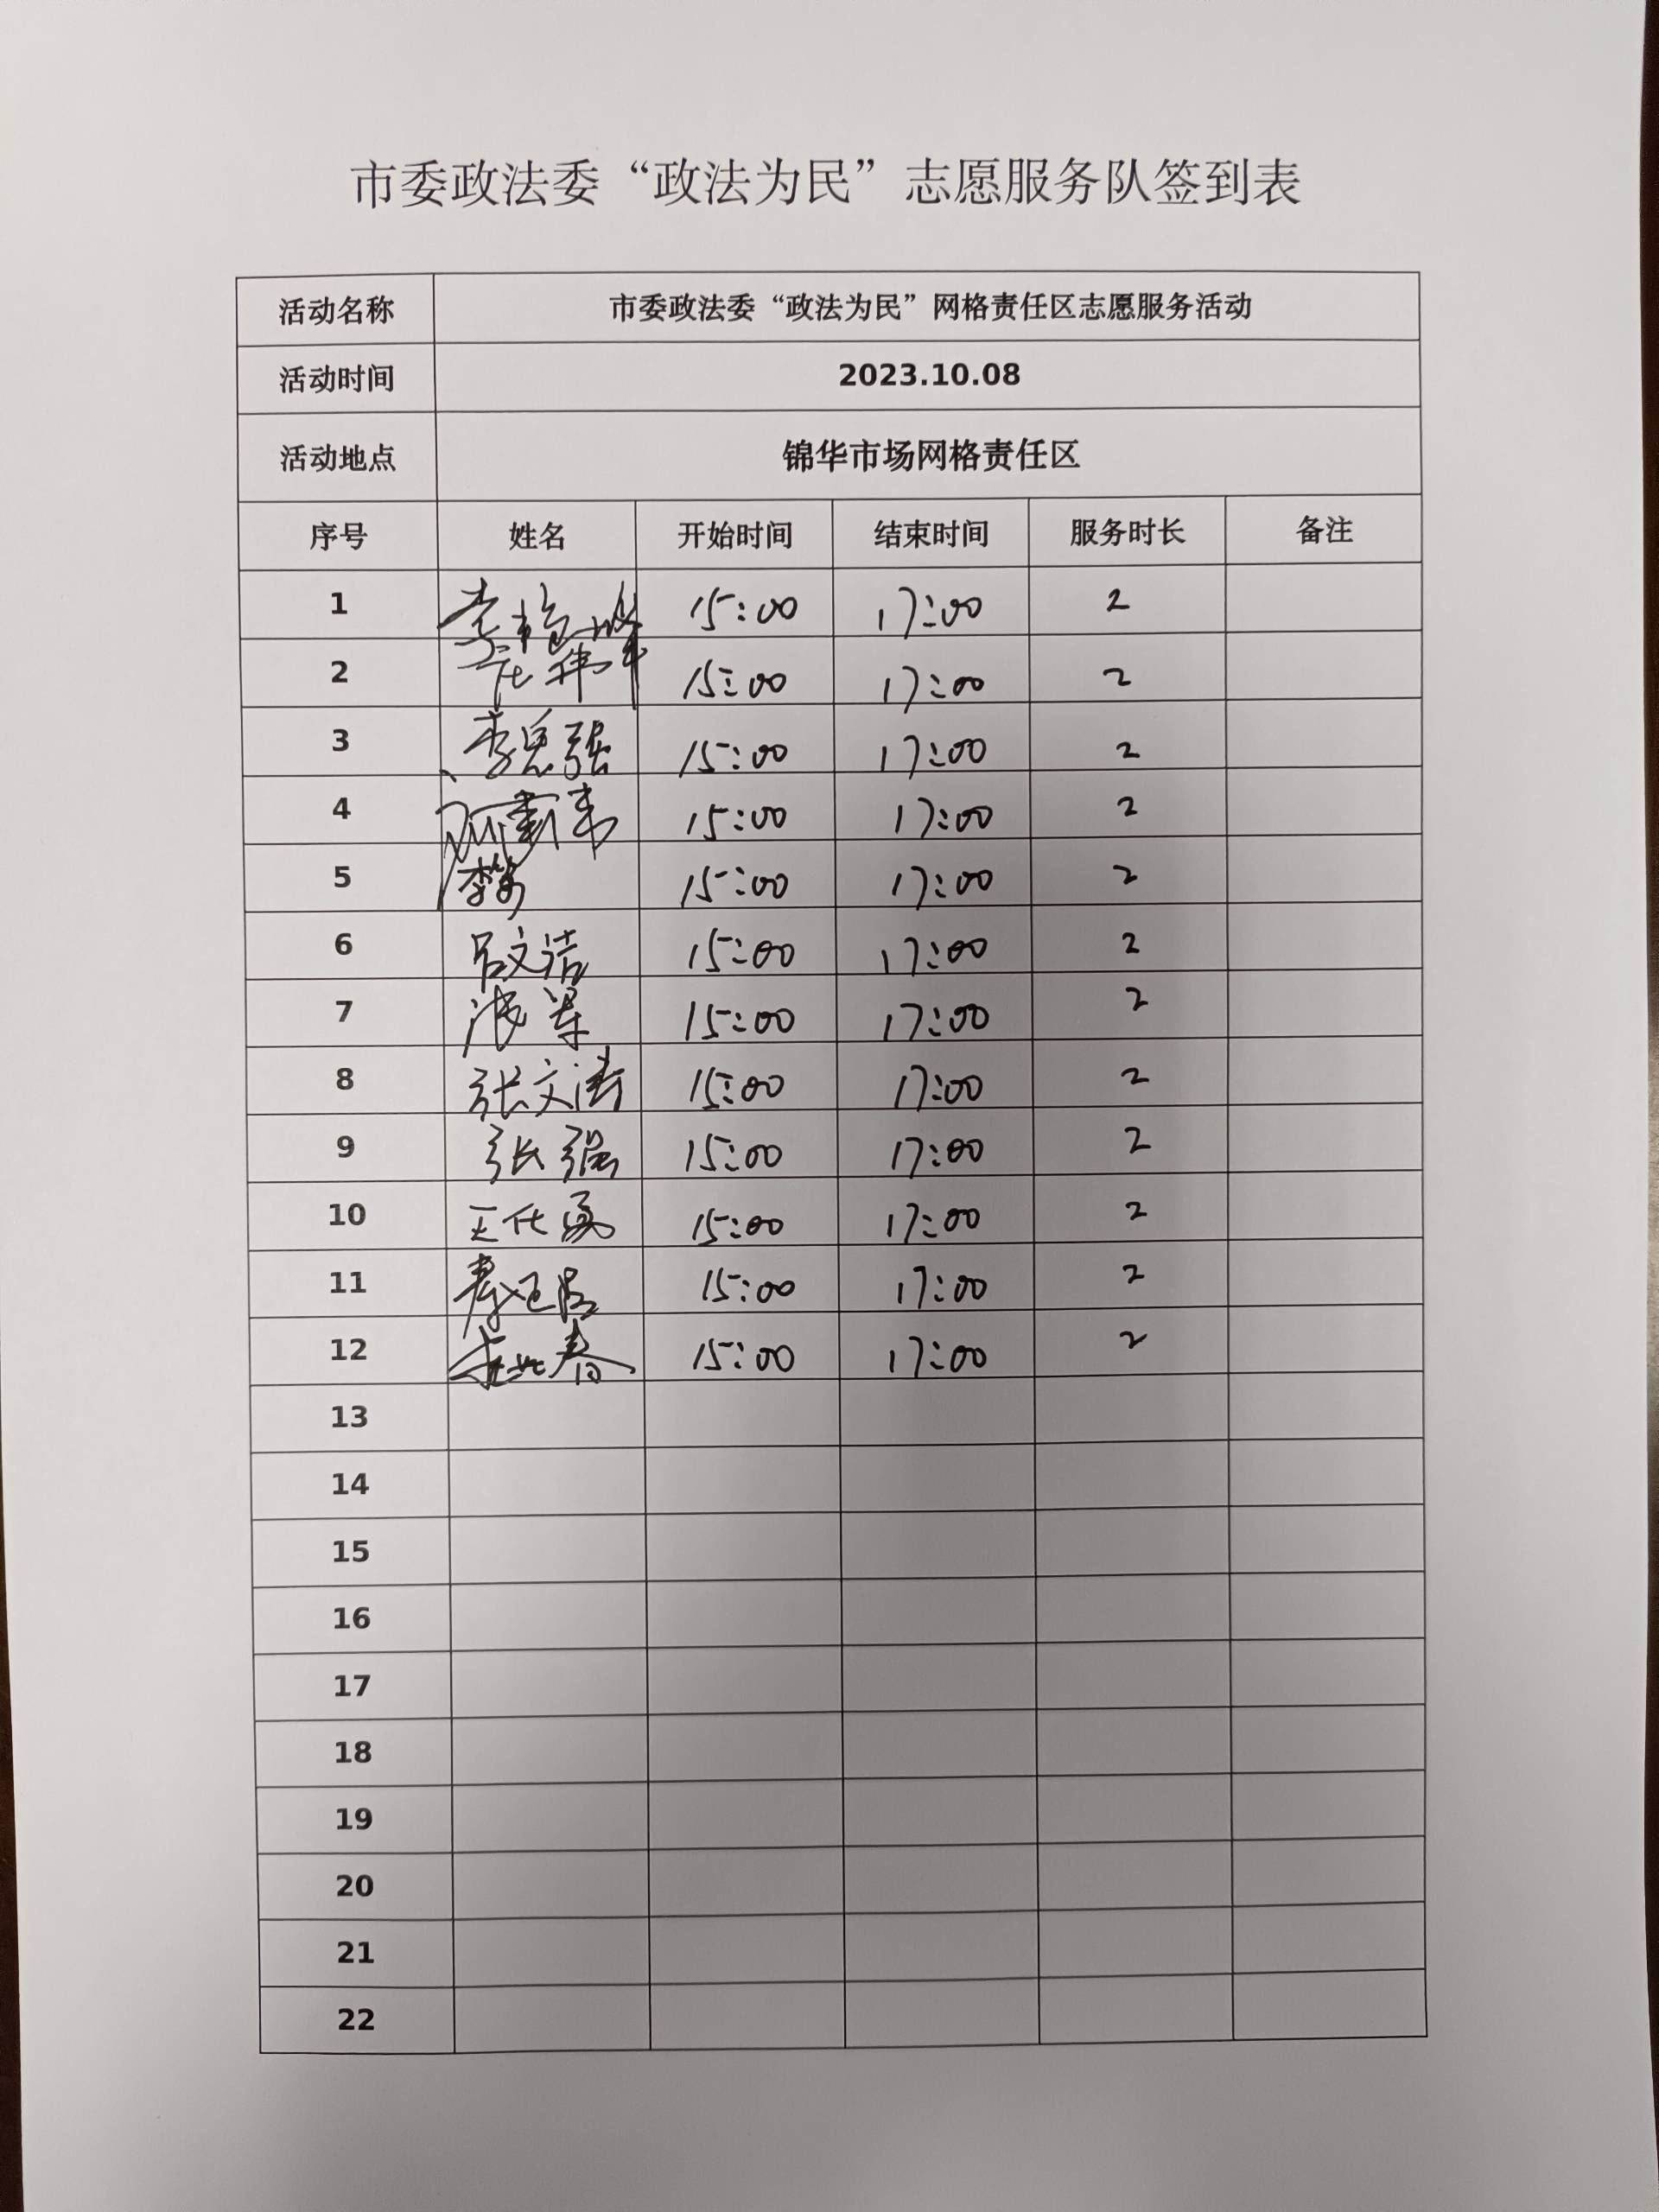 市委政法委“政法为民”志愿服务队签到表
活动名称 市委政法委“政法为民”网格责任区志愿服务活动
活动时间 2023.10.08
活动地点 锦华市场网格责任区
序号 姓名 开始时间 结束时间 服务时长 备注
1 15:00 17:00 2
2 15:00 17:00 2
3 李思强 15:00 17:00 2
4 15:00 17:00 2
5 15:00 17:00 2
6 吕文洁 15:00 17:00 2
7 15:00 17:00 2
8 张文涛 15:00 17:00 2
9 张强 15:00 17:00 2
10 15:00 17:00 2
11 15:00 17:00 2
12 15:00 17:00 2
13
14
15
16
17
18
19
20
21
22